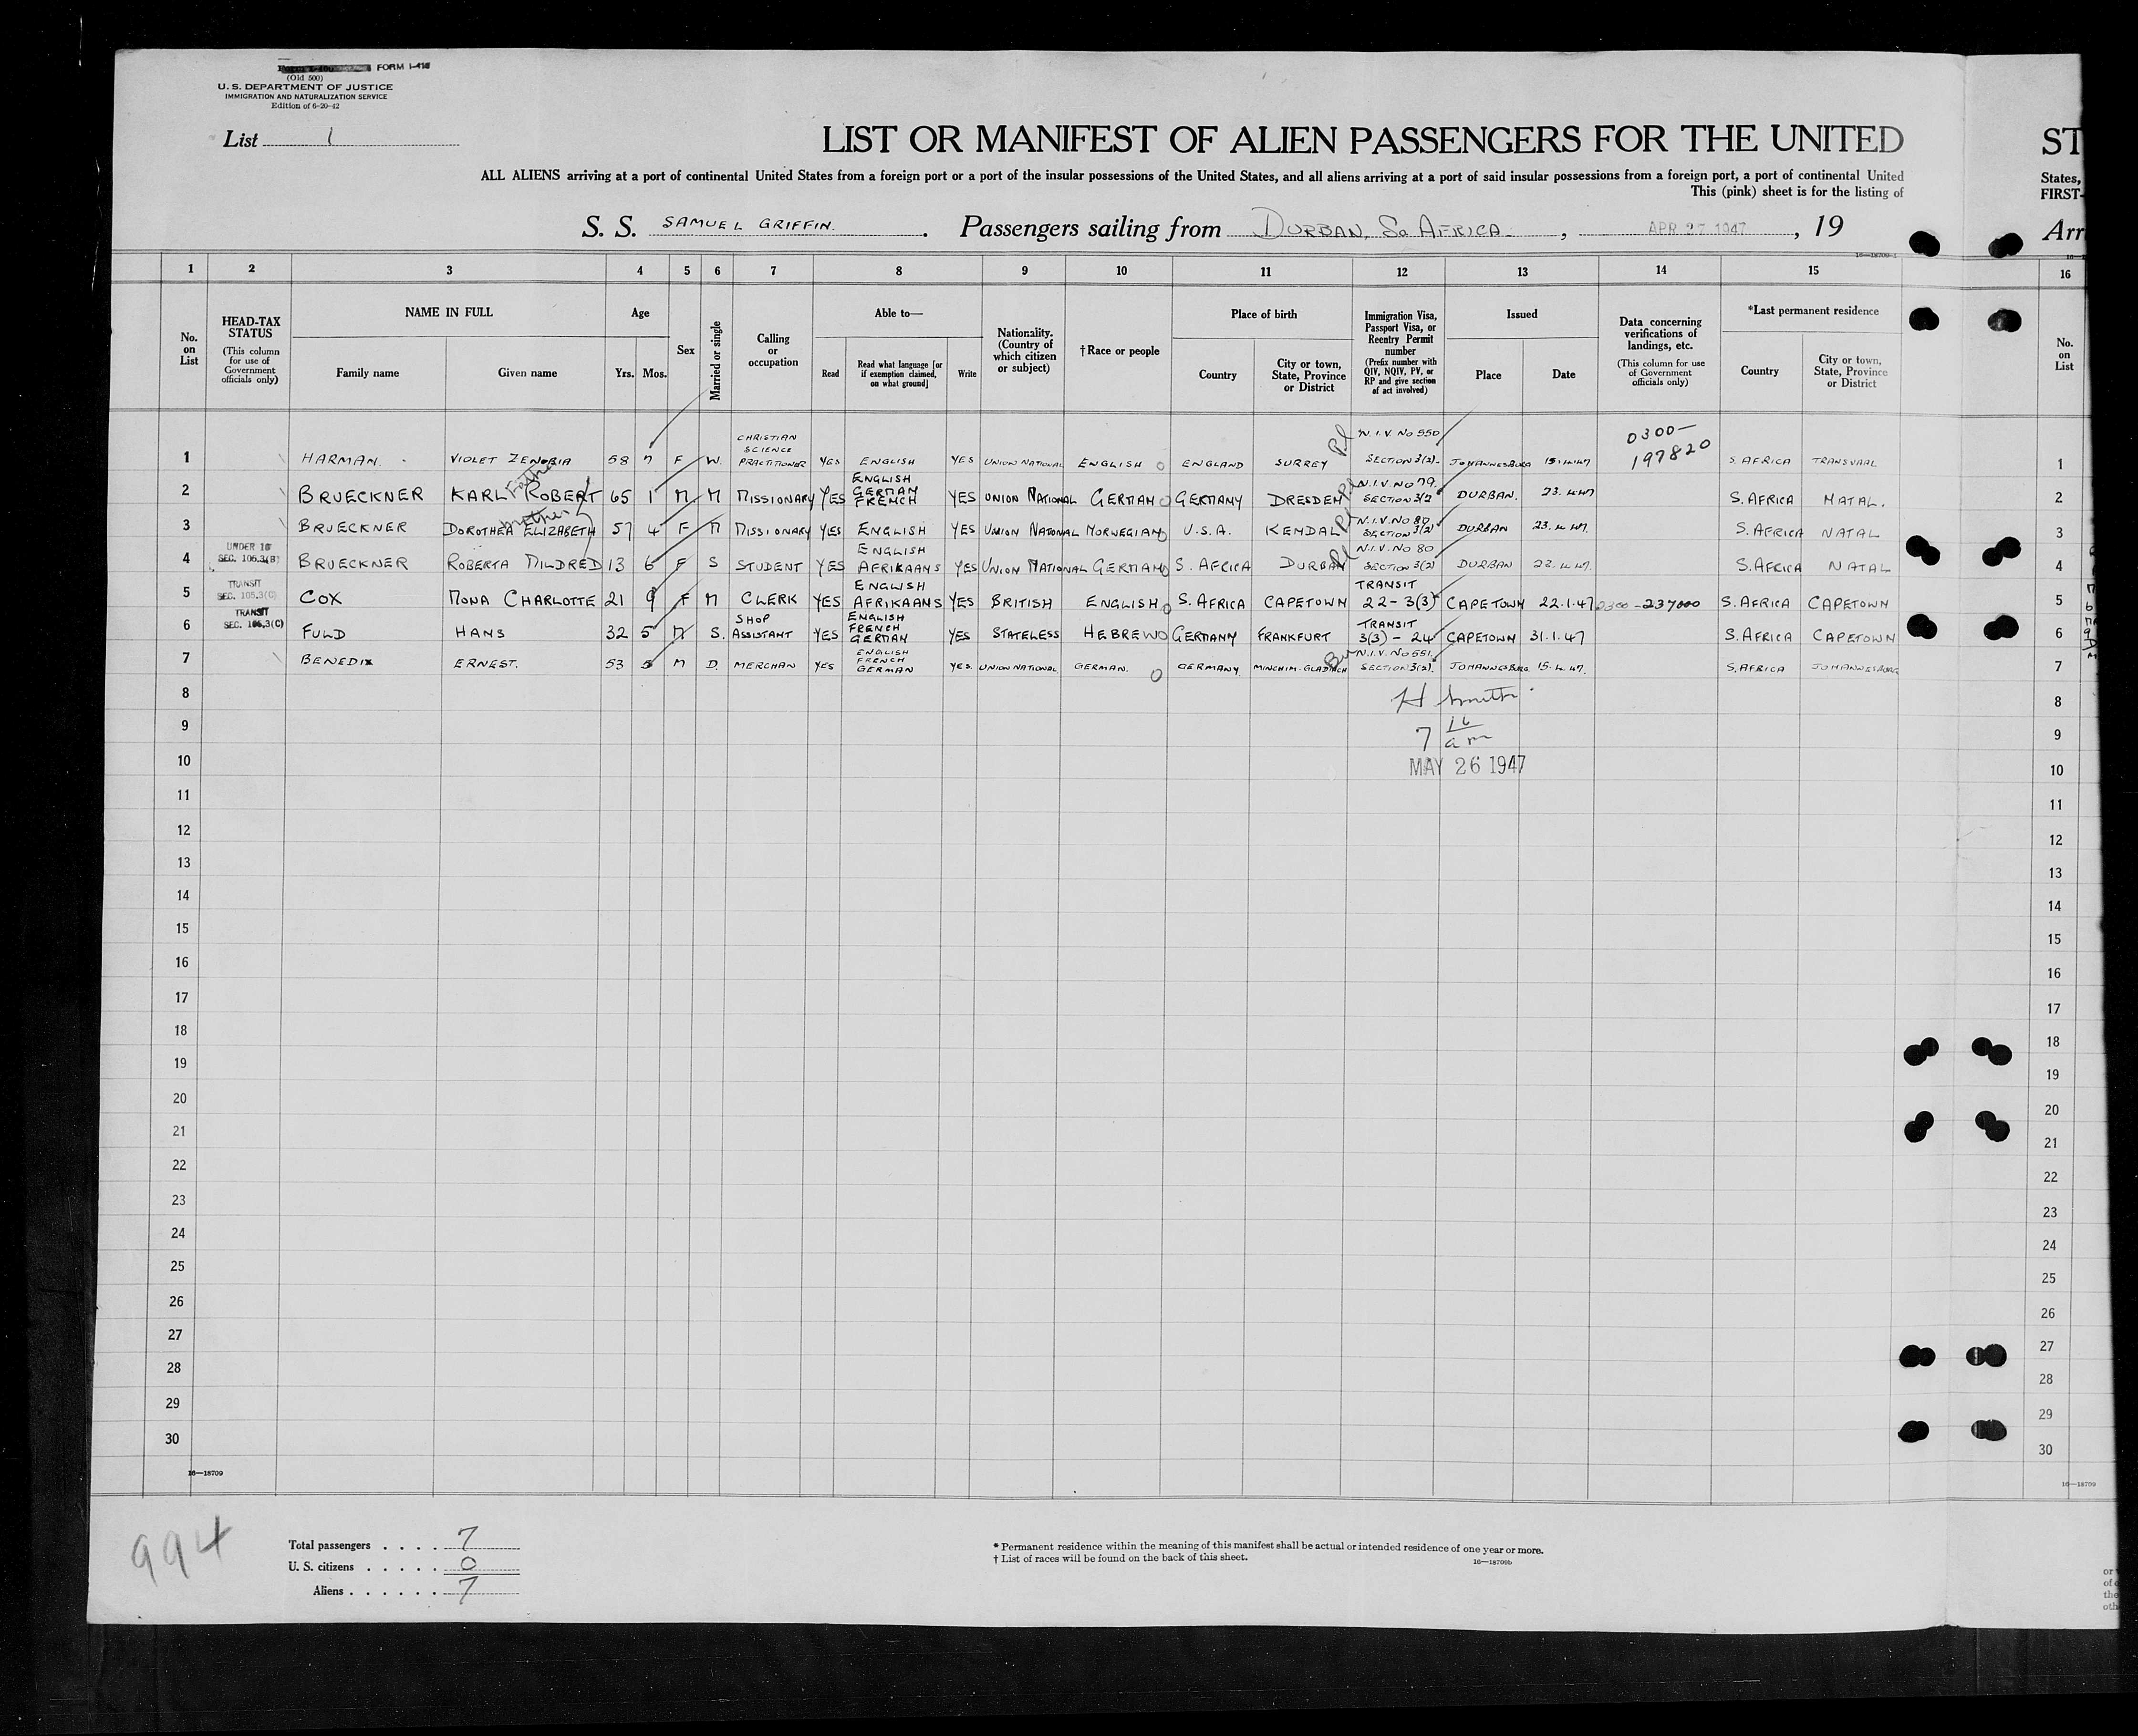 FORM I-418
(Old 500)
U. S. DEPARTMENT OF JUSTICE
IMMIGRATION AND NATURALIZATION SERVICE
Edition of 6-20-42
List 1
LIST OR MANIFEST OF ALIEN PASSENGERS FOR THE UNITED ST
ALL ALIENS arriving at a port of continental United States from a foreign port or a port of the insular possessions of the United States, and all aliens arriving at a port of said insular possessions from a foreign port, a port of continental United States,
This (pink) sheet is for the listing of FIRST-
S. S. SAMUEL GRIFFIN. Passengers sailing from DURBAN, So AFRICA , APR 27 1947 , 19 Arr
16—18709-1
1 2 3 4 5 6 7 8 9 10 11 12 13 14 15 16
No. on List
HEAD-TAX STATUS (This column for use of Government officials only)
NAME IN FULL Family name Given name
Age Yrs. Mos.
Sex
Married or single
Calling or occupation
Able to— Read Read what language [or if exemption claimed, on what ground] Write
Nationality. (Country of which citizen or subject)
†Race or people
Place of birth Country City or town, State, Province or District
Immigration Visa, Passport Visa, or Reentry Permit number (Prefix number with QIV, NQIV, PV, or RP and give section of act involved)
Issued Place Date
Data concerning verifications of landings, etc. (This column for use of Government officials only)
*Last permanent residence Country City or town, State, Province or District
No. on List
1 HARMAN. VIOLET ZENOBIA 58 7 F W. CHRISTIAN SCIENCE PRACTITIONER YES ENGLISH YES UNION NATIONAL ENGLISH ENGLAND SURREY N.I.V. No 550 SECTION 3(2) JOHANNESBURG 15.4.47 0300— 197820 S. AFRICA TRANSVAAL 1
2 BRUECKNER KARL ROBERT Father 65 1 M M MISSIONARY YES ENGLISH GERMAN FRENCH YES UNION NATIONAL GERMAN GERMANY DRESDEN N.I.V. No 79. SECTION 3(2 DURBAN. 23.4.47 S. AFRICA NATAL. 2
3 BRUECKNER DOROTHEA ELIZABETH mother 57 4 F M MISSIONARY YES ENGLISH YES UNION NATIONAL NORWEGIAN U.S.A. KENDAL N.I.V. No 80 SECTION 3(2) DURBAN 23.4.47. S. AFRICA NATAL 3
4 UNDER 16 SEC. 106.3(B) BRUECKNER ROBERTA MILDRED 13 6 F S STUDENT YES ENGLISH AFRIKAANS YES UNION NATIONAL GERMAN S. AFRICA DURBAN N.I.V. No 80 SECTION 3(2) DURBAN 23.4.47. S. AFRICA NATAL 4
5 TRANSIT SEC. 106.3(C) COX MONA CHARLOTTE 21 9 F M CLERK YES ENGLISH AFRIKAANS YES BRITISH ENGLISH S. AFRICA CAPETOWN TRANSIT 22-3(3) CAPETOWN 22.1.47 0300-237000 S. AFRICA CAPETOWN 5
6 TRANSIT SEC. 106.3(C) FULD HANS 32 5 M S. SHOP ASSISTANT YES ENGLISH FRENCH GERMAN YES STATELESS HEBREW GERMANY FRANKFURT TRANSIT 3(3) - 24 CAPETOWN 31.1.47 S. AFRICA CAPETOWN 6
7 BENEDIX ERNEST. 53 5 M D. MERCHAN YES ENGLISH FRENCH GERMAN YES. UNION NATIONAL GERMAN. GERMANY MINCHIM-GLADBACH N.I.V. No 551. SECTION 3(2). JOHANNESBURG 15.4.47. S. AFRICA JOHANNESBURG 7
8 H Smith 8
9 7 16 am 9
10 MAY 26 1947 10
11 11
12 12
13 13
14 14
15 15
16 16
17 17
18 18
19 19
20 20
21 21
22 22
23 23
24 24
25 25
26 26
27 27
28 28
29 29
30 30
16—18709 16—18709
994
Total passengers . . . . 7
U. S. citizens . . . . . 0
Aliens . . . . . . 7
* Permanent residence within the meaning of this manifest shall be actual or intended residence of one year or more.
† List of races will be found on the back of this sheet.
16—18709b